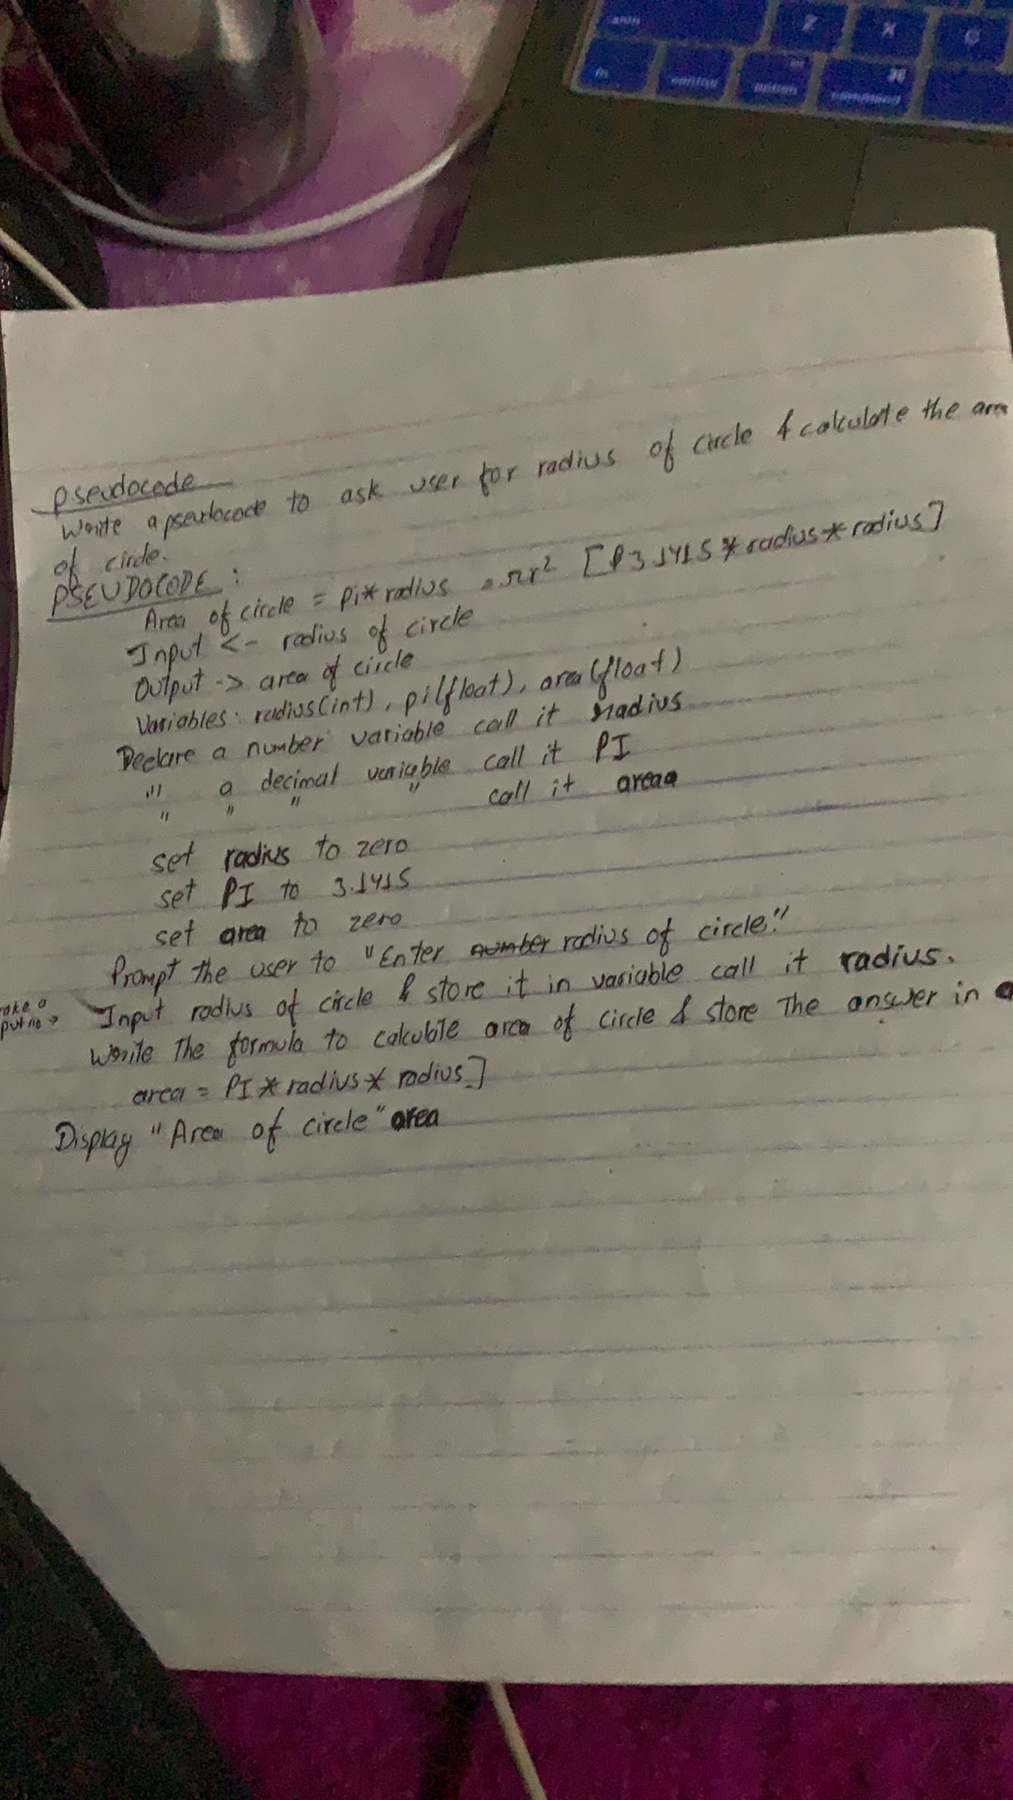 shift Z X C
fn control option command
pseudocode
Write a pseudocode to ask user for radius of circle & calculate the area
of circle.
PSEUDOCODE :
Area of circle = Pi * radius = πr² [ 3.1415 * radius * radius ]
Input <- radius of circle
Output -> area of circle
Variables: radius(int), pi(float), area(float)
Declare a number variable call it radius
" a decimal variable call it PI
" " " " call it area
set radius to zero
set PI to 3.1415
set area to zero
Prompt the user to "Enter number radius of circle."
Input radius of circle & store it in variable call it radius.
Write the formula to calculate area of circle & store the answer in
area = PI * radius * radius ]
Display "Area of circle" area